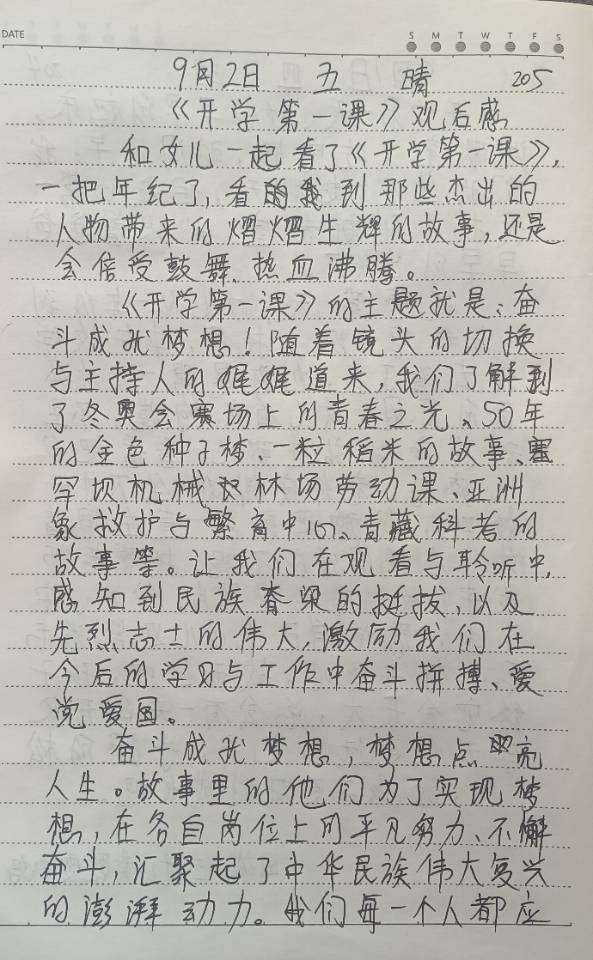 DATE
S M T W T F S
9月2日 五 晴 205
《开学第一课》观后感
和女儿一起看了《开学第一课》,
一把年纪了,看的我到那些杰出的
人物带来的熠熠生辉的故事,还是
会倍受鼓舞、热血沸腾。
《开学第一课》的主题就是:奋
斗成就梦想!随着镜头的切换
与主持人的娓娓道来,我们了解到
了冬奥会赛场上的青春之光、50年
的金色种子梦、一粒稻米的故事、塞
罕坝机械林场劳动课、亚洲
象救护与繁育中心、青藏科考的
故事等。让我们在观看与聆听中,
感知到民族脊梁的挺拔,以及
先烈志士的伟大,激励我们在
今后的学习与工作中奋斗拼搏、爱
党爱国。
奋斗成就梦想,梦想点亮
人生。故事里的他们为了实现梦
想,在各自岗位上的平凡努力、不懈
奋斗,汇聚起了中华民族伟大复兴
的澎湃动力。我们每一个人都应